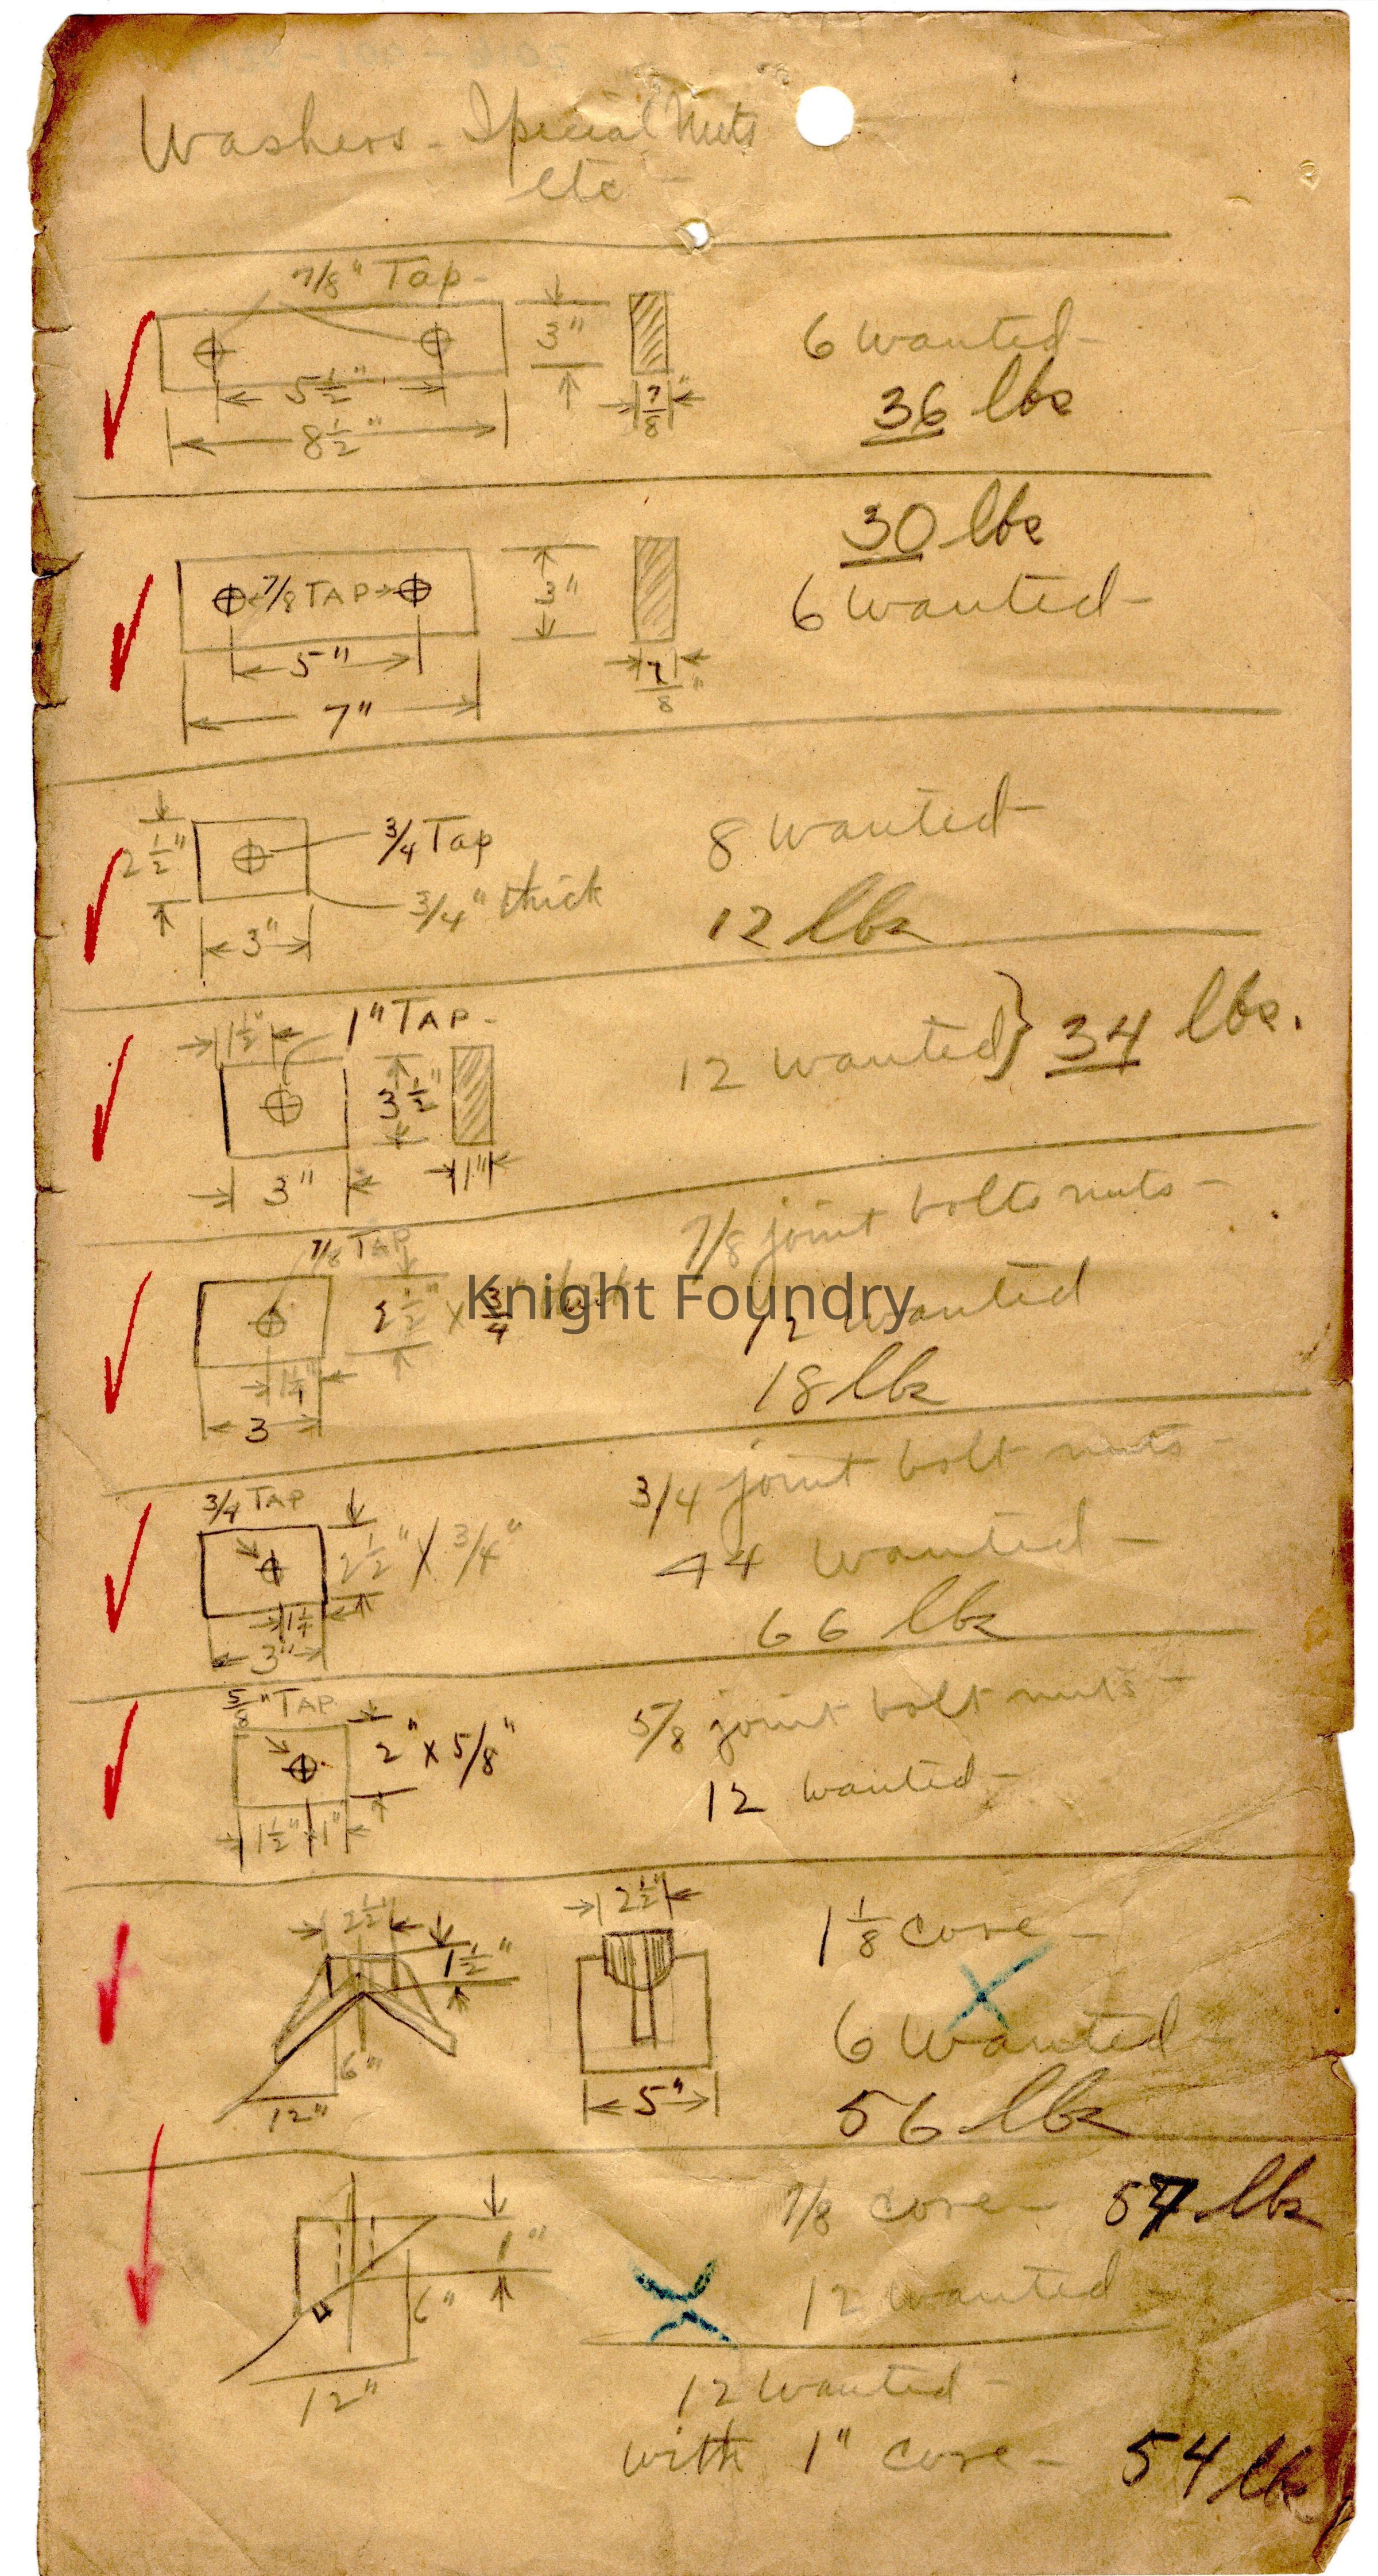 Washers - Special Nuts
etc -
7/8" Tap -
3"
6 wanted -
5 1/2"
7/8"
36 lbs
8 1/2"
30 lbs
7/8 TAP
3"
6 wanted -
5"
7/8"
7"
2 1/2"
3/4 Tap
8 wanted
3/4" thick
12 lbs
3"
1 1/2"
1" TAP -
12 wanted } 34 lbs.
3 1/2"
3"
1"
7/8 joint bolts nuts -
7/8 TAP
2 1/2" x 3/4"
Knight Foundry
12 wanted
18 lbs
3
3/4 joint bolt nuts -
3/4 TAP
2 1/2" x 3/4"
44 wanted -
1 1/4
66 lbs
3"
5/8" TAP
5/8 joint bolt nuts -
2" x 5/8"
12 wanted -
1 1/2" 1"
2 1/2"
2 1/2"
1 1/8 core -
1 1/2"
6 wanted -
6"
5"
12"
56 lbs
7/8 core - 57 lbs
1"
6"
12 wanted -
12"
12 wanted -
with 1" core - 54 lbs